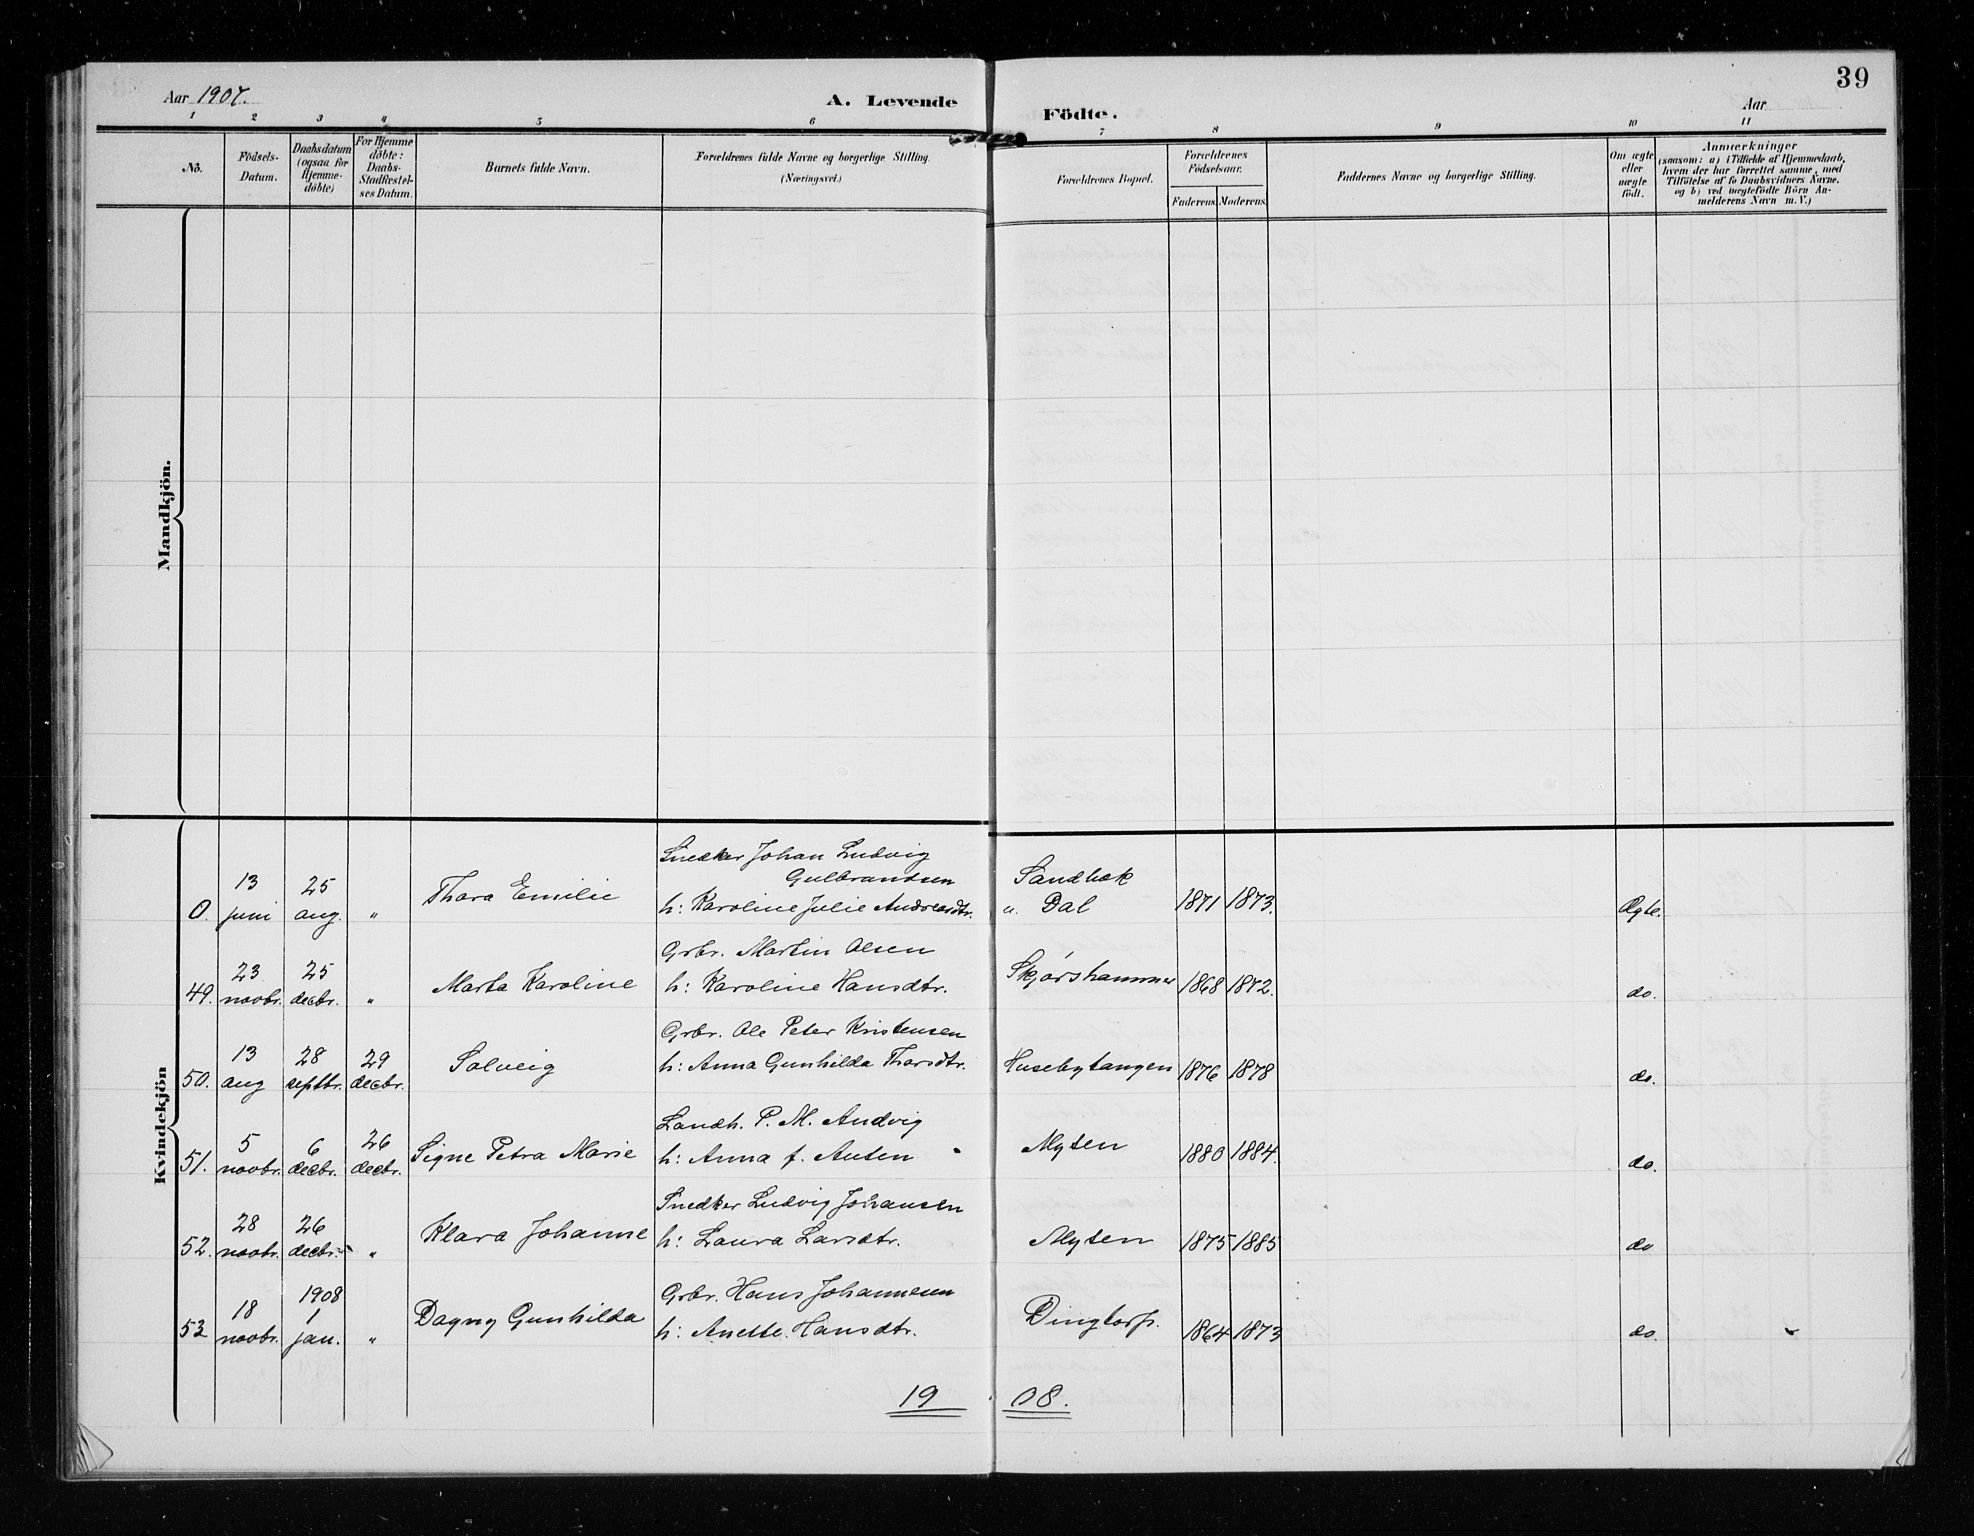 39
Aar 1907.
A. Levende Födte.
Aar
1 2 3 4 5 6 7 8 9 10 11
No.
Födsels-
Datum.
Daabsdatum
(ogsaa for
Hjemme-
döbte)
For Hjemme
döbte:
Daabs-
Stadfæstel-
ses Datum.
Barnets fulde Navn.
Forældrenes fulde Navne og borgerlige Stilling.
(Næringsvei.)
Forældrenes Bopæl.
Forældrenes
Födselsaar.
Faderens. Moderens.
Faddernes Navne og borgerlige Stilling.
Om ægte
eller
uægte
födt.
Anmærkninger
(saasom: a) i Tilfælde af Hjemmedaab,
hvem der har forrettet samme, med
Tilföielse af to Daabsvidners Navne.
og b) ved uægtefödte Börn An-
melderens Navn m. V.)
Mandkjön.
Kvindekjön
Snedker Johan Ludvig
Gulbrandsen
Sandbæk
13 25
Thora Emilie
0. juni aug. "
h: Karoline Julie Andreasdtr.
u. Dal 1871 1873. Ægte.
Grbr. Martin Olsen
23 25
Marta Karoline
49. novbr. decbr. "
h: Karoline Hansdtr.
Skjørshammer 1868 1872. do.
Grbr. Ole Peter Kristensen
13 28 29
Solveig
50. aug septbr. decbr.
h: Anna Gunhilda Thorsdtr.
Husebytangen 1876 1878 do.
Landh. P. M. Andvig
5 6 26
Signe Petra Marie
51. novbr. decbr. decbr.
h: Anna f. Anten
Mysen 1880 1884. do.
Snedker Ludvig Johansen
28 26
Klara Johanne
52. novbr. decbr. "
h: Laura Larsdtr.
Mysen 1875 1885 do
Grbr. Hans Johannesen
1908
18 1
Dagny Gunhilda
53 novbr. jan. "
h: Anette Hansdtr.
Dingtorp. 1864 1873 do.
19 08.